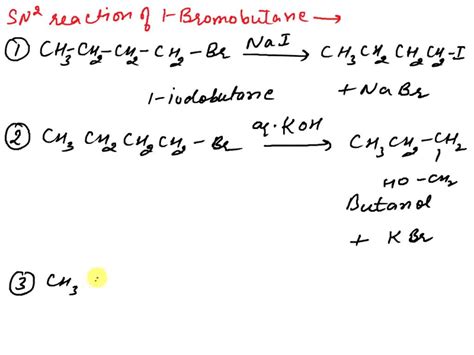 SN² reaction of 1-Bromobutane →
① CH₃-CH₂-CH₂-CH₂-Br NaI → CH₃CH₂CH₂CH₂-I
1-iodobutane + NaBr
② CH₃ CH₂CH₂CH₂-Br aq. KOH → CH₃CH₂-CH₂
HO-CH₂
Butanol
+ KBr
③ CH₃